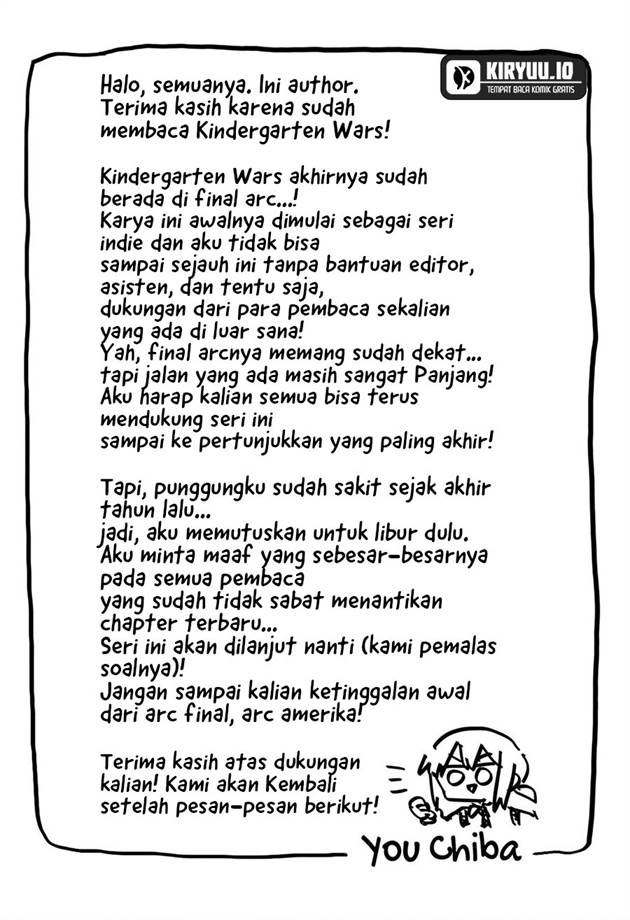 KIRYUU.IO
TEMPAT BACA KOMIK GRATIS
Halo, semuanya. Ini author.
Terima kasih karena sudah
membaca Kindergarten Wars!
Kindergarten Wars akhirnya sudah
berada di final arc...!
Karya ini awalnya dimulai sebagai seri
indie dan aku tidak bisa
sampai sejauh ini tanpa bantuan editor,
asisten, dan tentu saja,
dukungan dari para pembaca sekalian
yang ada di luar sana!
Yah, final arcnya memang sudah dekat...
tapi jalan yang ada masih sangat Panjang!
Aku harap kalian semua bisa terus
mendukung seri ini
sampai ke pertunjukkan yang paling akhir!
Tapi, punggungku sudah sakit sejak akhir
tahun lalu...
jadi, aku memutuskan untuk libur dulu.
Aku minta maaf yang sebesar-besarnya
pada semua pembaca
yang sudah tidak sabat menantikan
chapter terbaru...
Seri ini akan dilanjut nanti (kami pemalas
soalnya)!
Jangan sampai kalian ketinggalan awal
dari arc final, arc amerika!
Terima kasih atas dukungan
kalian! Kami akan Kembali
setelah pesan-pesan berikut!
You Chiba